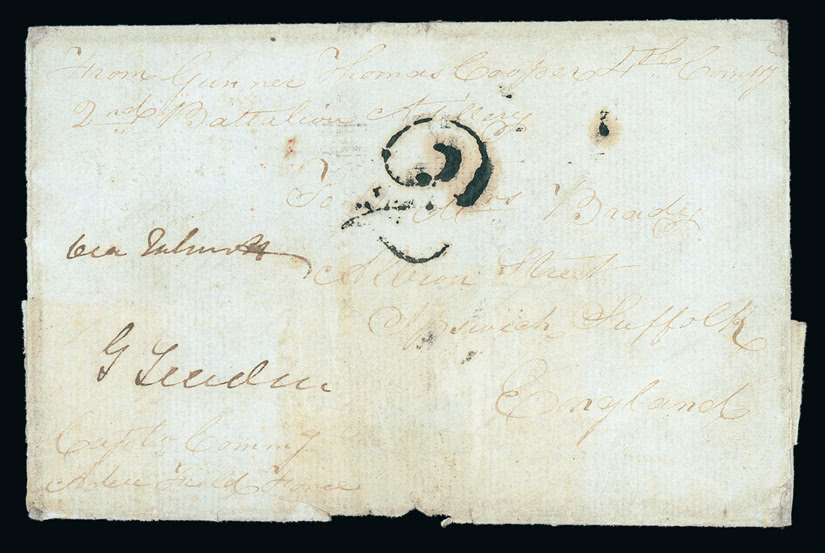 From Gunner Thomas Cooper 4th Compy
2nd Battalion Artillery
2
To Mrs Brady
via Falmouth
Albion Street
Ipswich Suffolk
G
England
Captn Commg
Aden Field Force